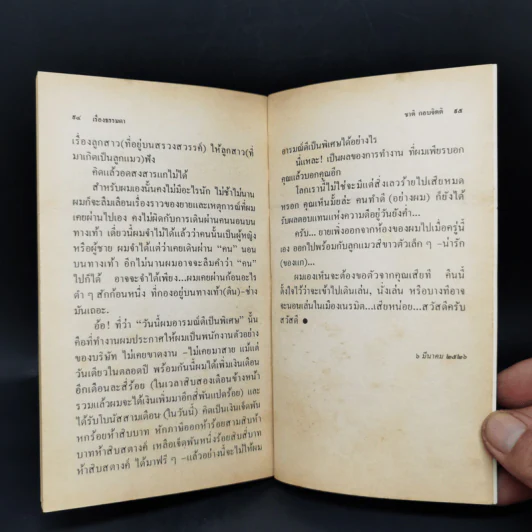 ๙๔ เรื่องธรรมดา
เรื่องลูกสาว(ที่อยู่บนสรวงสวรรค์) ให้ลูกสาว(ที่
มาเกิดเป็นลูกแมว)ฟัง
คิดแล้วอดสงสารแกไม่ได้
สำหรับผมเองนั้นคงไม่มีอะไรนัก ไม่ช้าไม่นาน
ผมก็จะลืมเลือนเรื่องราวของยายและเหตุการณ์ที่ผม
เคยผ่านไปเอง คงไม่ผิดกับการเดินผ่านคนนอนบน
ทางเท้า เดี๋ยวนี้ผมจำไม่ได้แล้วว่าคนนั้นเป็นผู้หญิง
หรือผู้ชาย ผมจำได้แต่ว่าเคยเดินผ่าน “คน” นอน
บนทางเท้า อีกไม่นานผมอาจจะลืมคำว่า “คน”
ไปก็ได้ อาจจะจำได้เพียง...ผมเคยผ่านก้อนอะไร
ดำ ๆ สักก้อนหนึ่ง ที่กองอยู่บนทางเท้า(ตีน)-ช่าง
มันเถอะ
อ้อ! ที่ว่า “วันนี้ผมอารมณ์ดีเป็นพิเศษ” นั้น
คือที่ทำงานผมประกาศให้ผมเป็นพนักงานตัวอย่าง
ของบริษัท ไม่เคยขาดงาน -ไม่เคยมาสาย แม้แต่
วันเดียวในตลอดปี พร้อมกันนี้ผมได้เพิ่มเงินเดือน
อีกเดือนละสี่ร้อย (ในเวลาสิบสองเดือนข้างหน้า
รวมแล้วผมจะได้เงินเพิ่มมาอีกสี่พันแปดร้อย) และ
ได้รับโบนัสสามเดือน (ในวันนี้) คิดเป็นเงินเจ็ดพัน
หกร้อยห้าสิบบาท หักภาษีออกห้าร้อยสามสิบห้า
บาทห้าสิบสตางค์ เหลือเจ็ดพันหนึ่งร้อยสิบสี่บาท
ห้าสิบสตางค์ ได้มาฟรี ๆ -แล้วอย่างนี้จะไม่ให้ผม
ชาติ กอบจิตติ ๙๕
อารมณ์ดีเป็นพิเศษได้อย่างไร
นี่แหละ! เป็นผลของการทำงาน ที่ผมเพียรบอก
คุณแล้วบอกคุณอีก
โลกเรานี้ไม่ใช่จะมีแต่สิ่งเลวร้ายไปเสียหมด
หรอก คุณเห็นมั้ยล่ะ คนทำดี (อย่างผม) ก็ยังได้
รับผลตอบแทนแห่งความดีอยู่วันยังค่ำ...
ครับ... ยายเพิ่งออกจากห้องของผมไปเมื่อครู่นี้
เอง ออกไปพร้อมกับลูกแมวสีขาวตัวเล็ก ๆ -น่ารัก
(ของแก)...
ผมเองเห็นจะต้องขอตัวจากคุณเสียที คืนนี้
ตั้งใจไว้ว่าจะเข้าไปเดินเล่น, นั่งเล่น หรือบางทีอาจ
จะนอนเล่นในเมืองเนรมิต...เสียหน่อย...สวัสดีครับ
สวัสดี ●
๖ มีนาคม ๒๕๒๖